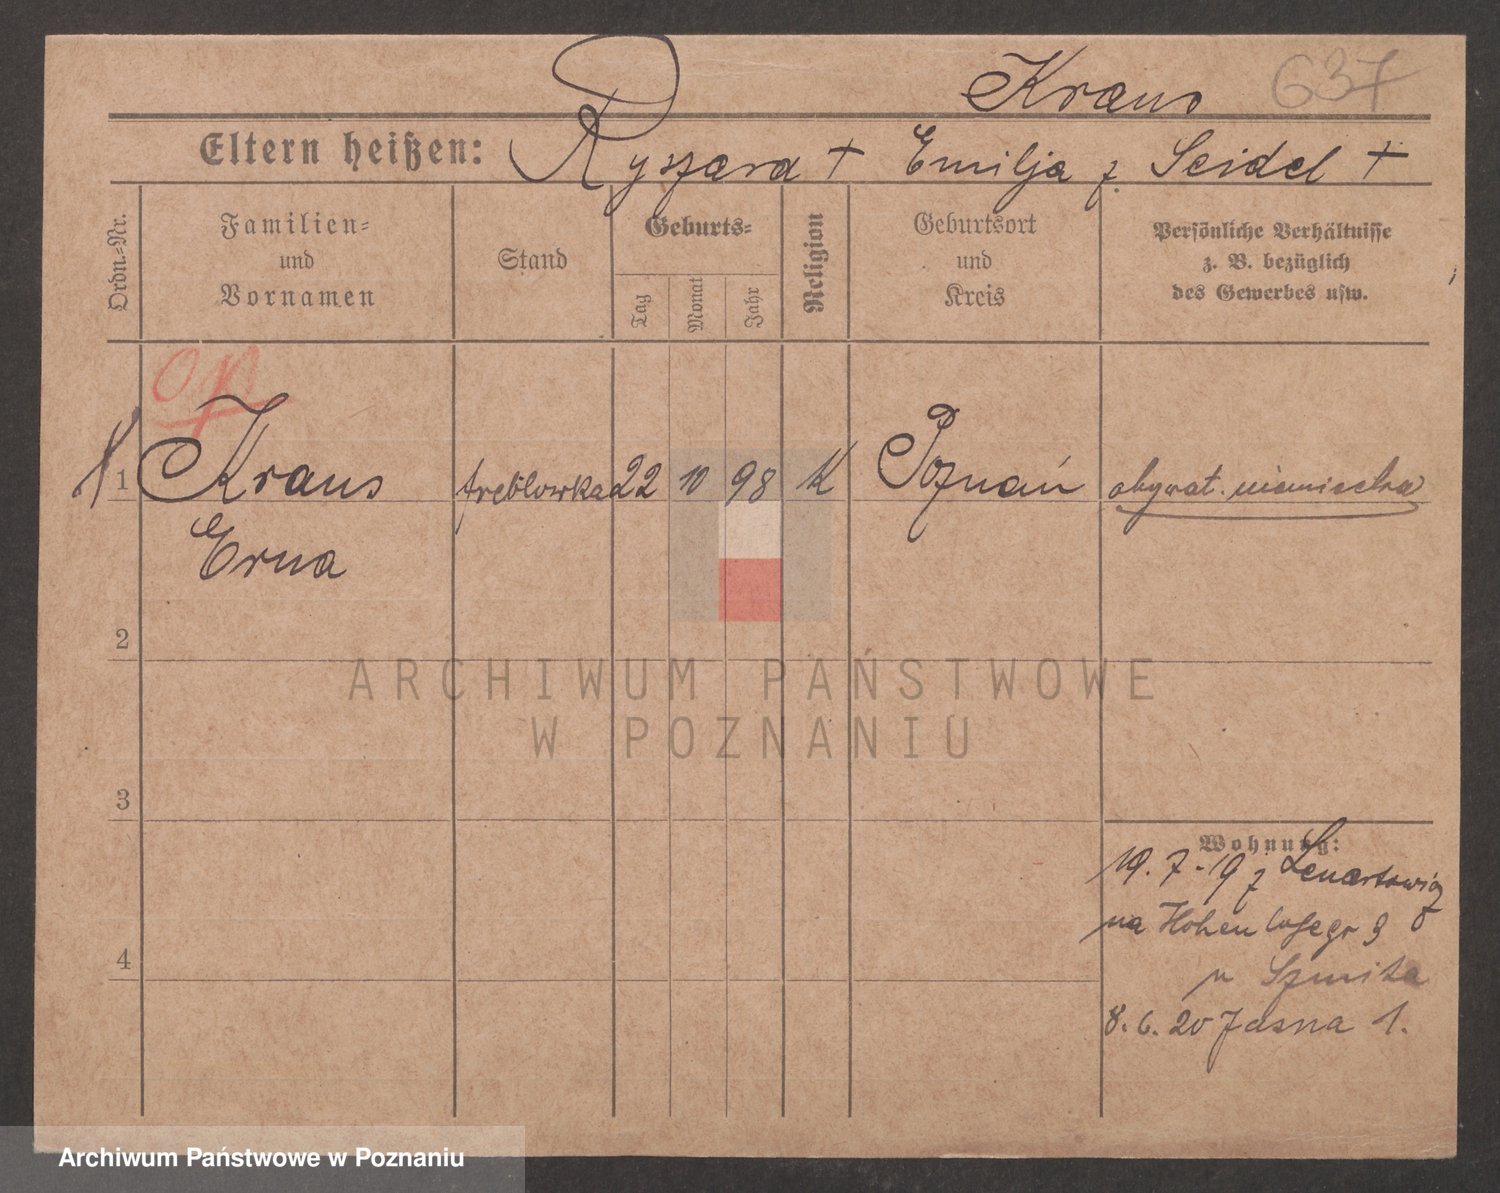 Kraus 637
Eltern heißen: Ryszard † Emilja z Seidel †
Ordn.=Nr.
Familien=
und
Vornamen
Stand
Geburts=
Tag
Monat
Jahr
Religion
Geburtsort
und
Kreis
Persönliche Verhältnisse
z. B. bezüglich
des Gewerbes usw.
1 Kraus freblowka 22 10 98 K Poznań obywat. niemiecka
Erna
2
ARCHIWUM PAŃSTWOWE
W POZNANIU
3
Wohnung:
19.7-19 z Lenartowicz
na Hohenlohegr 9
u Szmita
4
8.6.20 Jasna 1.
Archiwum Państwowe w Poznaniu